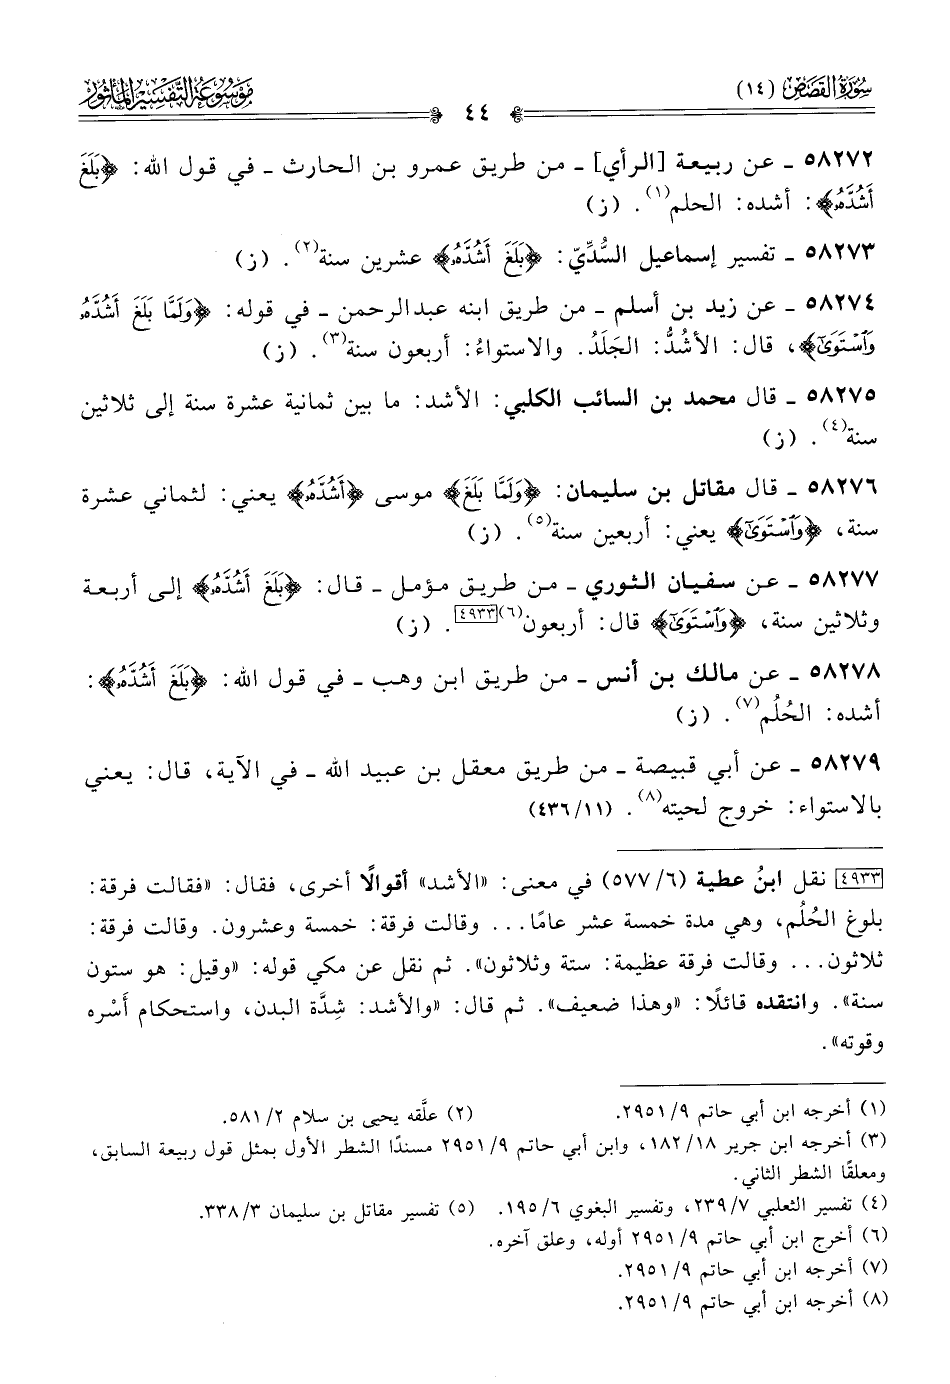 سُورَةُ القَصَصِ (١٤)
٤٤
مَوْسُوعَةُ التَّفْسِيرِ المَأْثُور
٥٨٢٧٢ ـ عن ربيعة [الرأي] ـ من طريق عمرو بن الحارث ـ في قول الله: ﴿بَلَغَ
أَشُدَّهُۥ﴾: أشده: الحلم(١). (ز)
٥٨٢٧٣ ـ تفسير إسماعيل السُّدِّيّ: ﴿بَلَغَ أَشُدَّهُۥ﴾ عشرين سنة(٢). (ز)
٥٨٢٧٤ ـ عن زيد بن أسلم ـ من طريق ابنه عبدالرحمن ـ في قوله: ﴿وَلَمَّا بَلَغَ أَشُدَّهُۥ
وَٱسْتَوَىٰٓ﴾، قال: الأشُدُّ: الجَلَدُ. والاستواءُ: أربعون سنة(٣). (ز)
٥٨٢٧٥ ـ قال محمد بن السائب الكلبي: الأشد: ما بين ثمانية عشرة سنة إلى ثلاثين
سنة(٤). (ز)
٥٨٢٧٦ ـ قال مقاتل بن سليمان: ﴿وَلَمَّا بَلَغَ﴾ موسى ﴿أَشُدَّهُۥ﴾ يعني: لثماني عشرة
سنة، ﴿وَٱسْتَوَىٰٓ﴾ يعني: أربعين سنة(٥). (ز)
٥٨٢٧٧ ـ عن سفيان الثوري ـ من طريق مؤمل ـ قال: ﴿بَلَغَ أَشُدَّهُۥ﴾ إلى أربعة
وثلاثين سنة، ﴿وَٱسْتَوَىٰٓ﴾ قال: أربعون(٦)[٤٩٣٣]. (ز)
٥٨٢٧٨ ـ عن مالك بن أنس ـ من طريق ابن وهب ـ في قول الله: ﴿بَلَغَ أَشُدَّهُۥ﴾:
أشده: الحُلُم(٧). (ز)
٥٨٢٧٩ ـ عن أبي قبيصة ـ من طريق معقل بن عبيد الله ـ في الآية، قال: يعني
بالاستواء: خروج لحيته(٨). (١١/ ٤٣٦)
[٤٩٣٣] نقل ابنُ عطية (٦/ ٥٧٧) في معنى: «الأشد» أقوالًا أخرى، فقال: «فقالت فرقة:
بلوغ الحُلُم، وهي مدة خمسة عشر عامًا... وقالت فرقة: خمسة وعشرون. وقالت فرقة:
ثلاثون... وقالت فرقة عظيمة: ستة وثلاثون». ثم نقل عن مكي قوله: «وقيل: هو ستون
سنة». وانتقده قائلًا: «وهذا ضعيف». ثم قال: «والأشد: شِدَّة البدن، واستحكام أَسْره
وقوته».
(١) أخرجه ابن أبي حاتم ٩/ ٢٩٥١. (٢) علَّقه يحيى بن سلام ٢/ ٥٨١.
(٣) أخرجه ابن جرير ١٨/ ١٨٢، وابن أبي حاتم ٩/ ٢٩٥١ مسندًا الشطر الأول بمثل قول ربيعة السابق،
ومعلقًا الشطر الثاني.
(٤) تفسير الثعلبي ٧/ ٢٣٩، وتفسير البغوي ٦/ ١٩٥. (٥) تفسير مقاتل بن سليمان ٣/ ٣٣٨.
(٦) أخرج ابن أبي حاتم ٩/ ٢٩٥١ أوله، وعلق آخره.
(٧) أخرجه ابن أبي حاتم ٩/ ٢٩٥١.
(٨) أخرجه ابن أبي حاتم ٩/ ٢٩٥١.